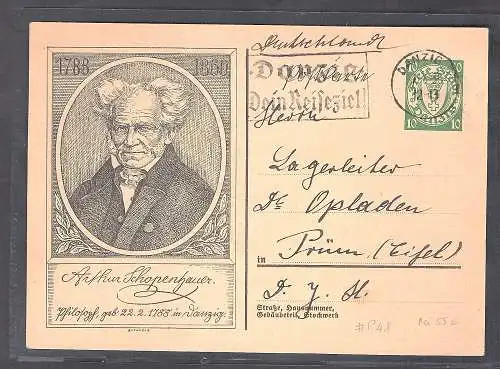 1788 1860
Arthur Schopenhauer.
Philosoph, geb. 22. 2. 1788 in Danzig.
Deutschland
Danzig
Dein Reiseziel
DANZIG
10 10
10 10
Herrn
Lagerleiter
Dr Opladen
in Prüm (Eifel)
Straße, Hausnummer,
Gebäudeteil, Stockwerk